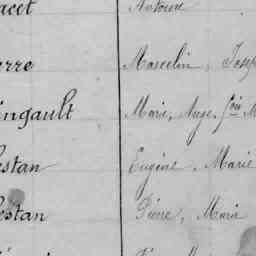 acet Antoine
erre Marcelin, Josep
ingault Marie, Ange, fois M
estan Eugène, Marie
estan Pierre, Marie